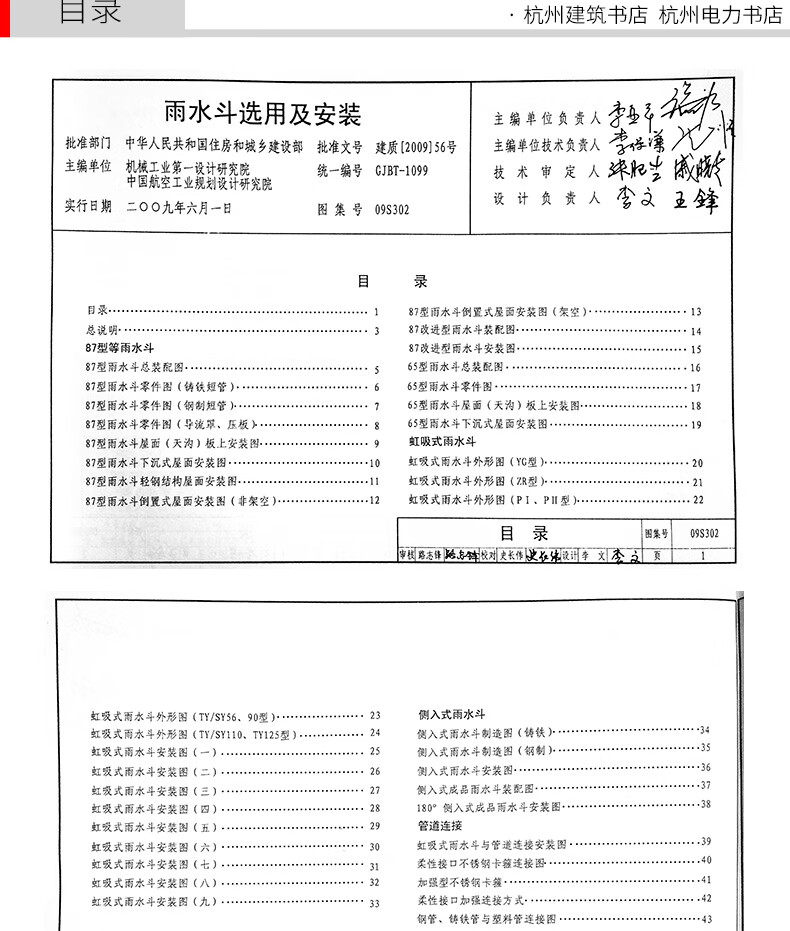 目录
· 杭州建筑书店 杭州电力书店
雨水斗选用及安装
批准部门 中华人民共和国住房和城乡建设部 批准文号 建质[2009]56号
主编单位 机械工业第一设计研究院 统一编号 GJBT-1099
中国航空工业规划设计研究院
实行日期 二〇〇九年六月一日 图集号 09S302
主编单位负责人
主编单位技术负责人
技术审定人
设计负责人 李文 王锋
目 录
目录 1
总说明 3
87型等雨水斗
87型雨水斗总装配图 5
87型雨水斗零件图(铸铁短管) 6
87型雨水斗零件图(钢制短管) 7
87型雨水斗零件图(导流罩、压板) 8
87型雨水斗屋面(天沟)板上安装图 9
87型雨水斗下沉式屋面安装图 10
87型雨水斗轻钢结构屋面安装图 11
87型雨水斗倒置式屋面安装图(非架空) 12
87型雨水斗倒置式屋面安装图(架空) 13
87改进型雨水斗装配图 14
87改进型雨水斗安装图 15
65型雨水斗总装配图 16
65型雨水斗零件图 17
65型雨水斗屋面(天沟)板上安装图 18
65型雨水斗下沉式屋面安装图 19
虹吸式雨水斗
虹吸式雨水斗外形图(YG型) 20
虹吸式雨水斗外形图(ZR型) 21
虹吸式雨水斗外形图(PⅠ、PⅡ型) 22
目 录 图集号 09S302
审核 路志锋 路志锋 校对 史长伟 史长伟 设计 李文 李文 页 1
虹吸式雨水斗外形图(TY/SY56、90型) 23
虹吸式雨水斗外形图(TY/SY110、TY125型) 24
虹吸式雨水斗安装图(一) 25
虹吸式雨水斗安装图(二) 26
虹吸式雨水斗安装图(三) 27
虹吸式雨水斗安装图(四) 28
虹吸式雨水斗安装图(五) 29
虹吸式雨水斗安装图(六) 30
虹吸式雨水斗安装图(七) 31
虹吸式雨水斗安装图(八) 32
虹吸式雨水斗安装图(九) 33
侧入式雨水斗
侧入式雨水斗制造图(铸铁) 34
侧入式雨水斗制造图(钢制) 35
侧入式雨水斗安装图 36
侧入式成品雨水斗装配图 37
180°侧入式成品雨水斗安装图 38
管道连接
虹吸式雨水斗与管道连接安装图 39
柔性接口不锈钢卡箍连接图 40
加强型不锈钢卡箍 41
柔性接口加强连接方式 42
钢管、铸铁管与塑料管连接图 43